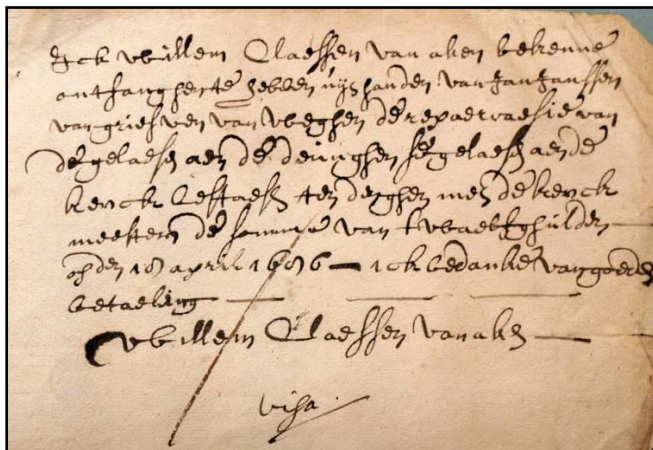 Ick Willem Claessen van aken bekenne
ontfanghen te hebben uijt handen van Jan Janssen
van griesven van weghen de van
de gelaesen aen de gelaesen aen de
kerck ten met de kerck
meesters de somme van twaelf ghulden
op den 18 april 1686 — ick bedancke van goeder
betaeling
Willem Claessen van aken
visa